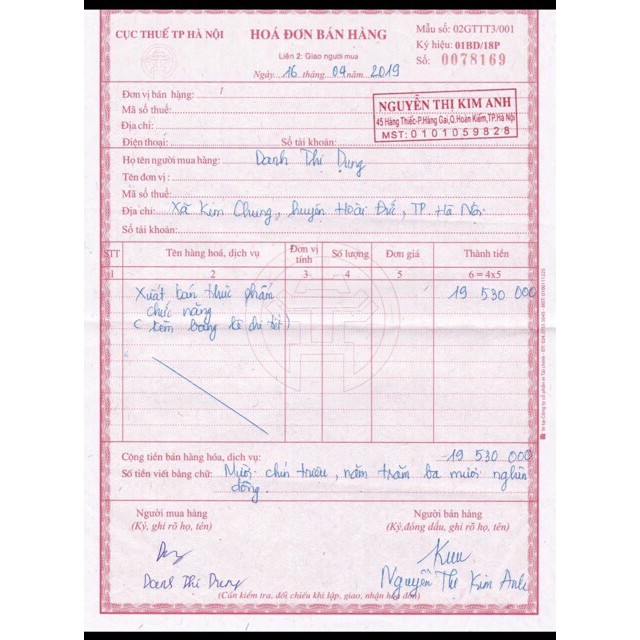 CỤC THUẾ TP HÀ NỘI
HOÁ ĐƠN BÁN HÀNG
Mẫu số: 02GTTT3/001
Liên 2: Giao người mua
Ký hiệu: 01BD/18P
Ngày 16 tháng 09 năm 2019
Số: 0078169
Đơn vị bán hàng:
Mã số thuế:
Địa chỉ:
Điện thoại: Số tài khoản:
NGUYỄN THỊ KIM ANH
45 Hàng Thiếc-P.Hàng Gai,Q.Hoàn Kiếm,TP.Hà Nội
MST: 0101059828
Họ tên người mua hàng: Danh Thị Dung
Tên đơn vị:
Mã số thuế:
Địa chỉ: Xã Kim Chung, huyện Hoài Đức, TP. Hà Nội
Số tài khoản:
STT Tên hàng hoá, dịch vụ Đơn vị tính Số lượng Đơn giá Thành tiền
1 2 3 4 5 6 = 4x5
Xuất bán thực phẩm 19 530 000
chức năng
( kèm bảng kê chi tiết )
Cộng tiền bán hàng hóa, dịch vụ: 19 530 000
Số tiền viết bằng chữ: Mười chín triệu, năm trăm ba mươi nghìn
đồng.
Người mua hàng Người bán hàng
(Ký, ghi rõ họ, tên) (Ký,đóng dấu, ghi rõ họ, tên)
Danh Thị Dung Nguyễn Thị Kim Anh
(Cần kiểm tra, đối chiếu khi lập, giao, nhận hóa đơn)